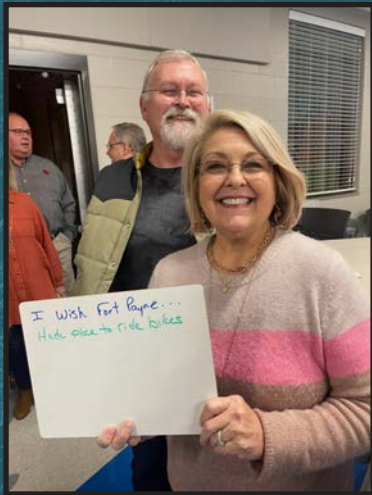 I Wish Fort Payne...
Had place to ride bikes